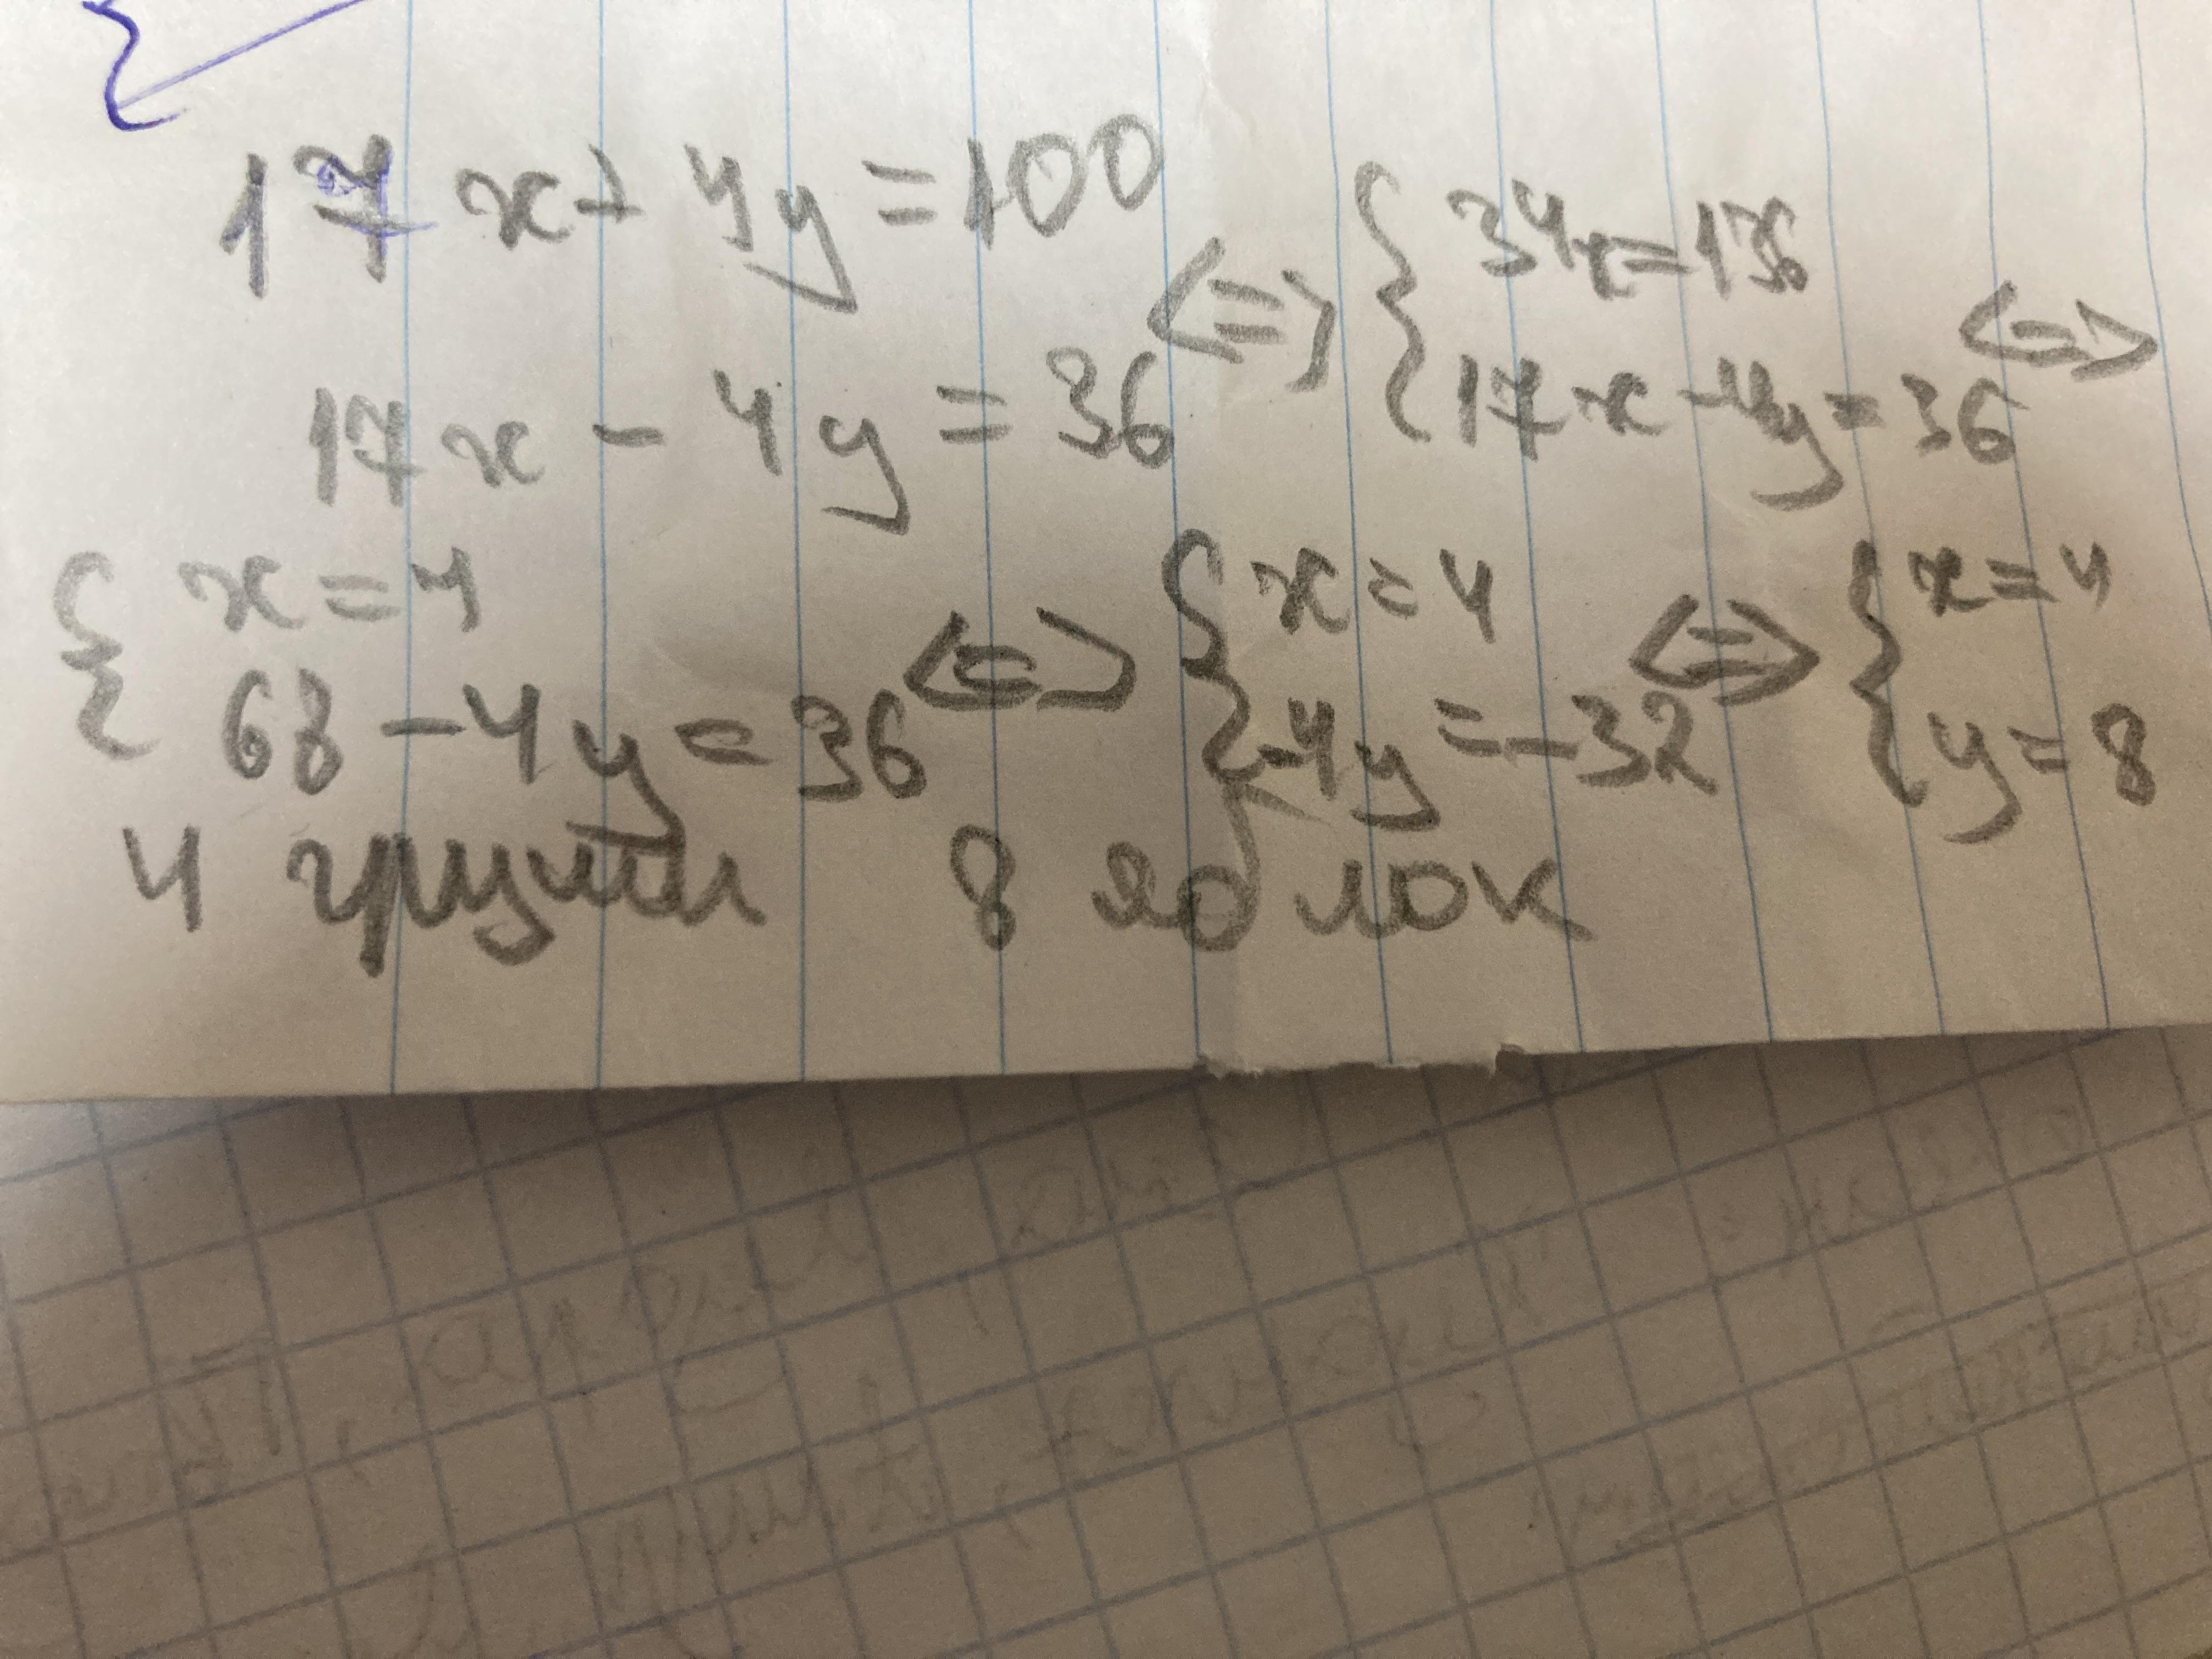 17x + 4y = 100
17x - 4y = 36 <=> { 34x = 136
17x - 4y = 36 <=>
{ x = 4
68 - 4y = 36 <=> { x = 4
-4y = -32 <=> { x = 4
y = 8
4 груши 8 яблок